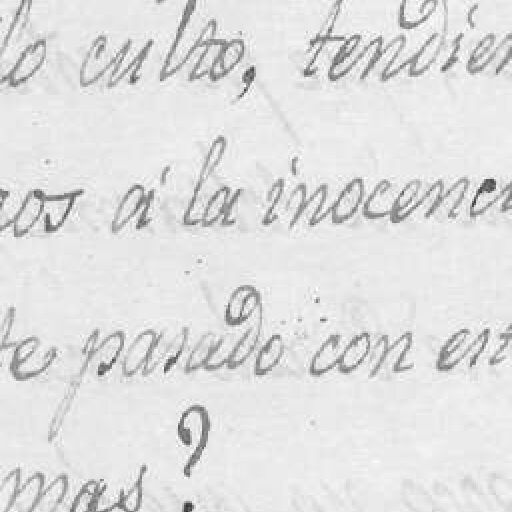 lo culto, tendien
ros á la inocenci
te pasado con est
mas?